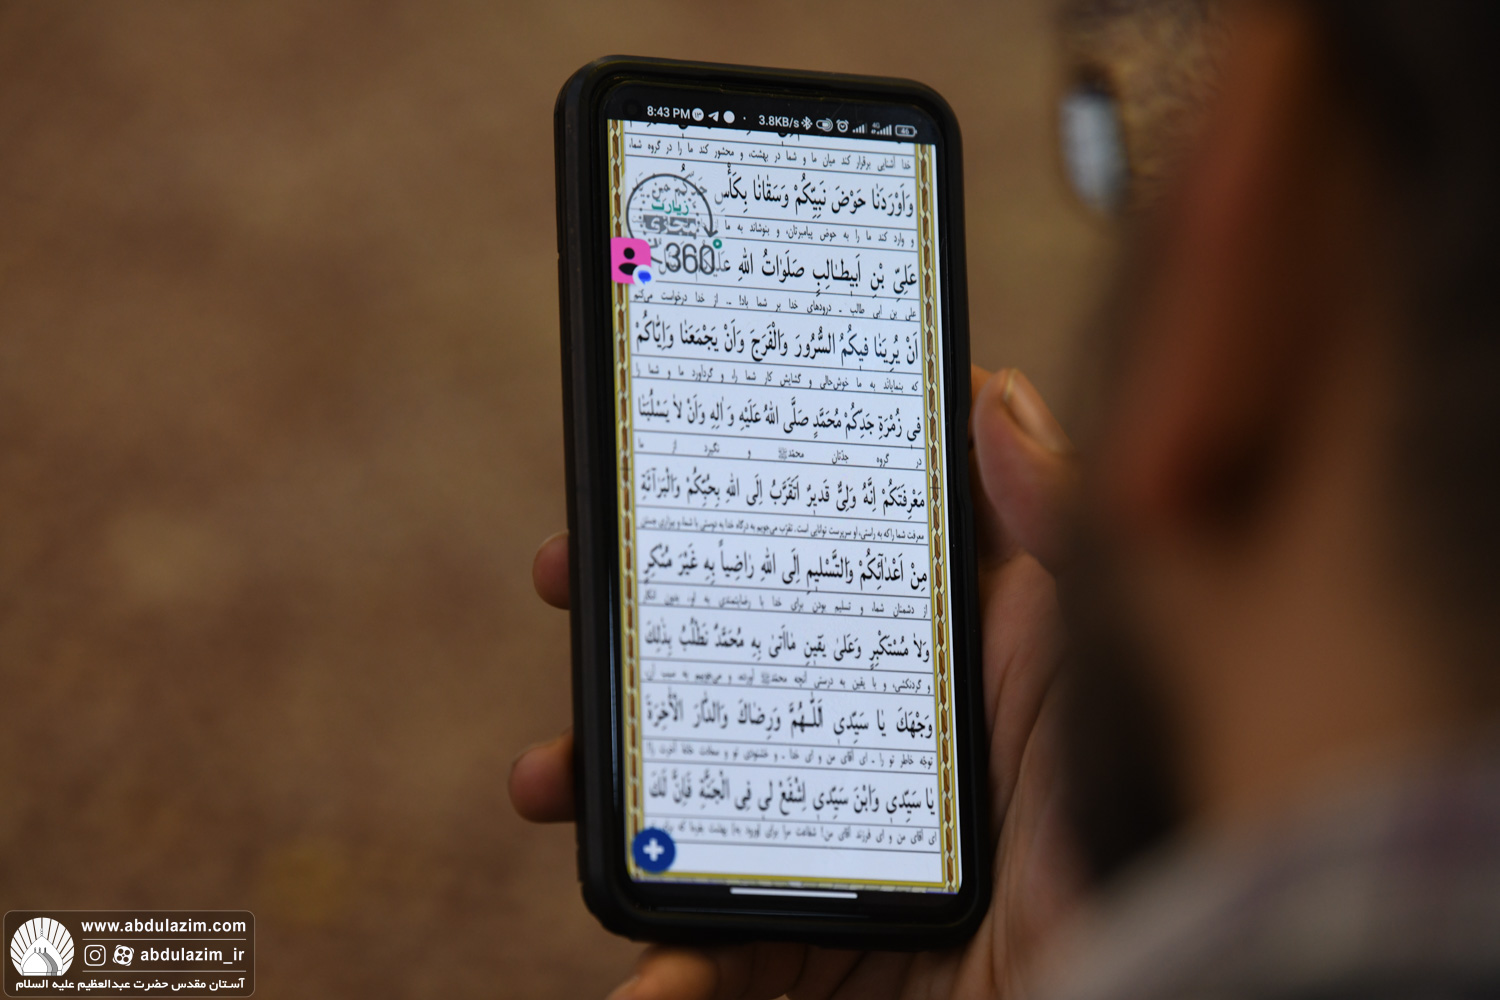 8:43 PM 3.8KB/s 4G 46
خدا آشنایی برقرار کند میان ما و شما در بهشت، و محشور کند ما را در گروه شما،
وَاَوْرَدَنٰا حَوْضَ نَبِیِّکُمْ وَسَقٰانٰا بِکَأْسِ جَدِّکُمْ
زیارت
مجازی
و وارد کند ما را به حوض پیامبرتان، و بنوشاند به ما
360
عَلِیِّ بْنِ اَبیطٰالِبٍ صَلَوٰاتُ اللهِ
علی بن ابی طالب ـ درودهای خدا بر شما باد! ـ. از خدا درخواست می‌کنیم
اَنْ یُرِیَنٰا فیکُمُ السُّرُورَ وَالْفَرَجَ وَاَنْ یَجْمَعَنٰا وَاِیّٰاکُمْ
که بنمایاند به ما خوش‌حالی و گشایش کار شما را، و گردآورد ما و شما را
فی زُمْرَةِ جَدِّکُمْ مُحَمَّدٍ صَلَّی اللهُ عَلَیْهِ وَ اٰلِهِ وَاَنْ لاٰ یَسْلُبَنٰا
در گروه جدّتان محمّدﷺ و نگیرد از ما
مَعْرِفَتَکُمْ اِنَّهُ وَلِیٌّ قَدیرٌ اَتَقَرَّبُ اِلَی اللهِ بِحُبِّکُمْ وَالْبَرٰآئَةِ
معرفت شما را که به راستی، او سرپرست توانایی است. تقرّب می‌جویم به درگاه خدا به دوستی با شما، و بیزاری جستن
مِنْ اَعْدٰآئِکُمْ وَالتَّسْلیمِ اِلَی اللهِ رٰاضِیاً بِهِ غَیْرَ مُنْکِرٍ
از دشمنان شما، و تسلیم بودن برای خدا با رضایتمندی به او، بدون انکار
وَلاٰ مُسْتَکْبِرٍ وَعَلیٰ یَقینِ مٰااَتیٰ بِهِ مُحَمَّدٌ نَطْلُبُ بِذٰلِکَ
و گردنکشی، و با یقین به درستی آنچه محمّدﷺ آورده، و می‌جوییم به سبب آن،
وَجْهَکَ یٰا سَیِّدی اَللّٰـهُمَّ وَرِضٰاکَ وَالدّٰارَ الْاٰخِرَةَ
توجّه خاطر تو را ـ ای آقای من و ای خدا ـ و خشنودی تو و سعادت خانهٔ آخرت را؛
یٰا سَیِّدی وَابْنَ سَیِّدی اِشْفَعْ لی فِی الْجَنَّةِ فَاِنَّ لَکَ
ای آقای من و ای فرزند آقای من! شفاعت مرا برای ورود بهشت بفرما که برای
www.abdulazim.com
abdulazim_ir
آستان مقدس حضرت عبدالعظیم علیه السلام